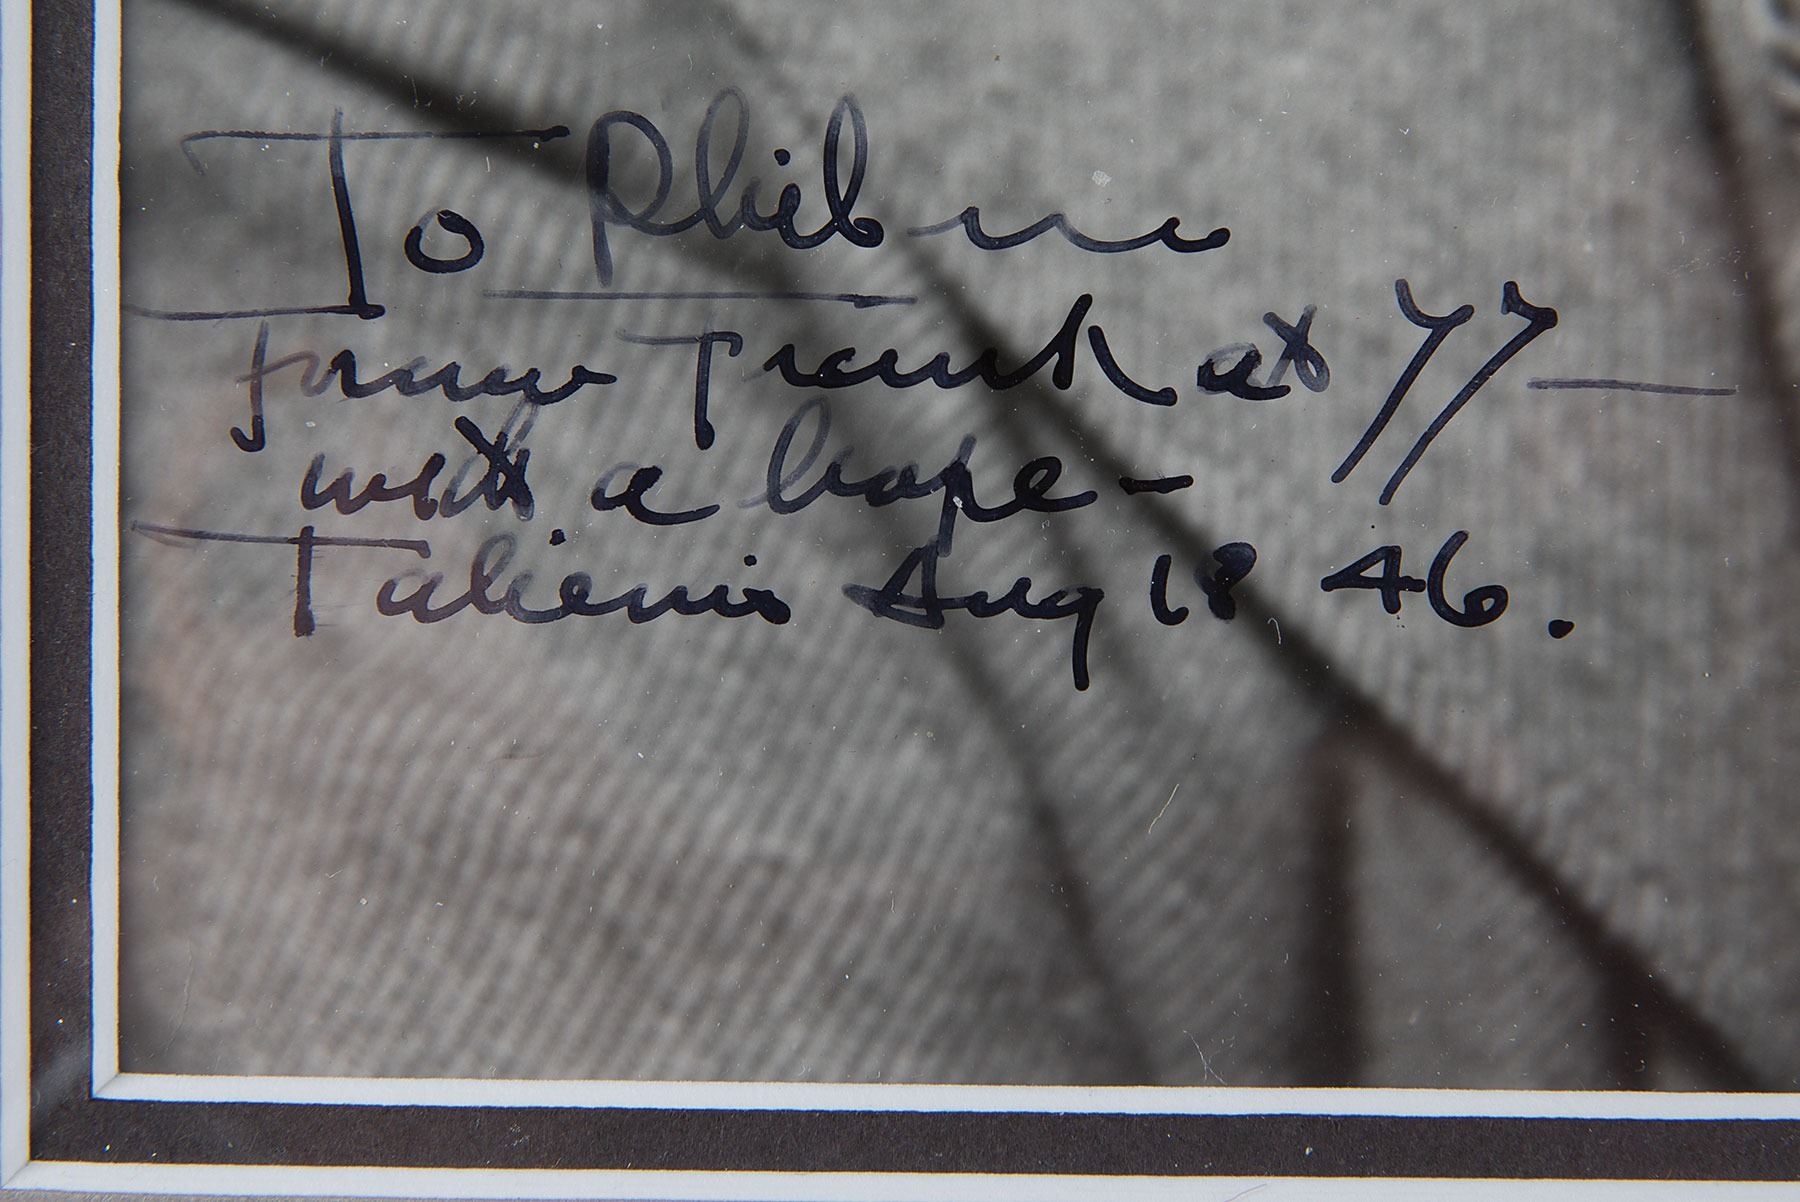 To
From Frank at 77 —
with a hope -
Taliesin Aug 18 46.